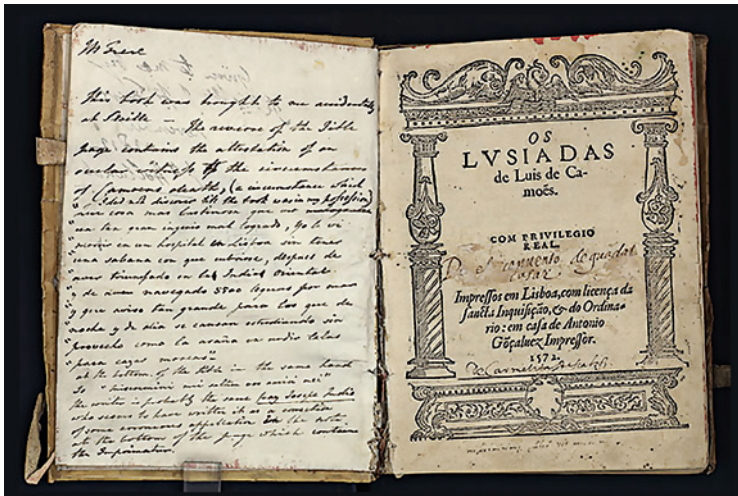 Mr Frere
This book was brought to me accidentally
at Seville — The reverse of the Title
page contains the attestation of an
ocular witness to the circumstances
of Camoens death, (a circumstance which
I did not discover till the book was in my possession)
"que cosa mas lastimosa que ver
"un tan gran ingenio mal logrado, yo le vi
"morir en un hospital en Lisboa sin tener
"una sabana con que cubrirse, despues de
"aver triunfado en la India Oriental
"y de aver navegado 5500 leguas por mar
"y que aviso tan grande para los que de
"noche y de dia se cansan estudiando sin
"provecho como la araña en urdir telas
"para cazar moscas"
at the bottom of the Title in the same hand
is "miseremini mei saltem vos amici mei"
the writer is probably the same Fray Joseph Indio
who seems to have written it as a correction
of some erroneous appellation in the note
at the bottom of the page which contains
the Imprimatur.
OS
LVSIADAS
de Luis de Ca-
moẽs.
COM PRIVILEGIO
REAL.
de guadal
Impressos em Lisboa, com licença da
sancta Inquisição, & do Ordina-
rio: em casa de Antonio
Gõçaluez Impressor.
1572.